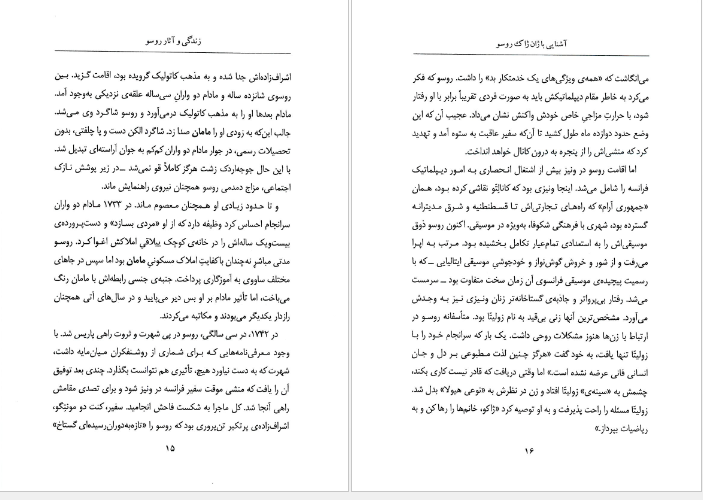 زندگی و آثار روسو
اشراف‌زاده‌اش جدا شده و به مذهب کاتولیک گرویده بود، اقامت گزید. بین
روسوی شانزده ساله و مادام دو وارانِ سی‌ساله علقه‌ی نزدیکی به‌وجود آمد.
مادام بعدها او را به مذهب کاتولیک درمی‌آورد و روسو شاگرد وی می‌شد.
جالب این‌که به زودی او را مامان صدا زد. شاگرد الکن دست و پا چلفتی، بدون
تحصیلات رسمی، در جوار مادام دو واران کم‌کم به جوان آراسته‌ای تبدیل شد.
با این حال جوجه‌اردک زشت هرگز کاملاً قو نمی‌شد ــ در زیر پوشش نازک
اجتماعی، مزاج دمدمی روسو همچنان نیروی راهنمایش ماند.
و تا حدود زیادی او همچنان معصوم ماند. در ۱۷۳۳ مادام دو واران
سرانجام احساس کرد وظیفه دارد که از او «مردی بسازد» و دست‌پرورده‌ی
بیست‌ویک ساله‌اش را در خانه‌ی کوچک ییلاقیِ املاکش اغوا کرد. روسو
مدتی مباشرِ نه‌چندان باکفایتِ املاک مسکونیِ مامان بود اما سپس در جاهای
مختلف ساووی به آموزگاری پرداخت. جنبه‌ی جنسی رابطه‌اش با مامان رنگ
می‌باخت، اما تأثیر مادام بر او بس دیر می‌پایید و در سال‌های آتی همچنان
رازدار یکدیگر می‌بودند و مکاتبه می‌کردند.
در ۱۷۴۲، در سی سالگی، روسو در پی شهرت و ثروت راهی پاریس شد. با
وجود معرفی‌نامه‌هایی که برای شماری از روشنفکران میان‌مایه داشت،
شهرت که به دست نیاورد هیچ، تأثیری هم نتوانست بگذارد. چندی بعد توفیق
آن را یافت که منشی موقت سفیر فرانسه در ونیز شود و برای تصدی مقامش
راهی آنجا شد. کل ماجرا به شکست فاحش انجامید. سفیر، کنت دو مونتگو،
اشراف‌زاده‌ی پرتکبر تن‌پروری بود که روسو را «تازه‌به‌دوران‌رسیده‌ای گستاخ»
۱۵
آشنایی با ژان ژاک روسو
می‌انگاشت که «همه‌ی ویژگی‌های یک خدمتکار بد» را داشت. روسو که فکر
می‌کرد به خاطر مقام دیپلماتیکش باید به صورت فردی تقریباً برابر با او رفتار
شود، با حرارتِ مزاجیِ خاص خودش واکنش نشان می‌داد. عجیب آن که این
وضع حدود دوازده ماه طول کشید تا آن‌که سفیر عاقبت به ستوه آمد و تهدید
کرد که منشی‌اش را از پنجره به درون کانال خواهد انداخت.
اما اقامت روسو در ونیز بیش از اشتغال انحصاری به امور دیپلماتیک
فرانسه را شامل می‌شد. اینجا ونیزی بود که کانالِتّو نقاشی کرده بود، همان
«جمهوری آرام» که راه‌های تجارتی‌اش تا قسطنطنیه و شرق مدیترانه
گسترده بود، شهری با فرهنگی شکوفا، به‌ویژه در موسیقی. اکنون روسو ذوق
موسیقی‌اش را به استعدادی تمام‌عیار تکامل بخشیده بود. مرتب به اپرا
می‌رفت و از شور و خروش گوش‌نواز و خودجوشیِ موسیقی ایتالیایی ــ که با
رسمیت پیچیده‌ی موسیقی فرانسوی آن زمان سخت متفاوت بود ــ سرمست
می‌شد. رفتار بی‌پرواتر و جاذبه‌ی گستاخانه‌تر زنان ونیزی نیز به وجدش
می‌آورد. مشخص‌ترین آنها زنی بی‌قید به نام زولیتّا بود. متأسفانه روسو در
ارتباط با زن‌ها هنوز مشکلات روحی داشت. یک بار که سرانجام خود را با
زولیتّا تنها یافت، به خود گفت «هرگز چنین لذت مطبوعی بر دل و جان
انسانی فانی عرضه نشده است.» اما وقتی دریافت که قادر نیست کاری بکند،
چشمش به «سینه‌ی» زولیتّا افتاد و زن در نظرش به «نوعی هیولا» بدل شد.
زولیتّا مسئله را راحت پذیرفت و به او توصیه کرد «ژاکو، خانم‌ها را رها کن و به
ریاضیات بپرداز.»
۱۶